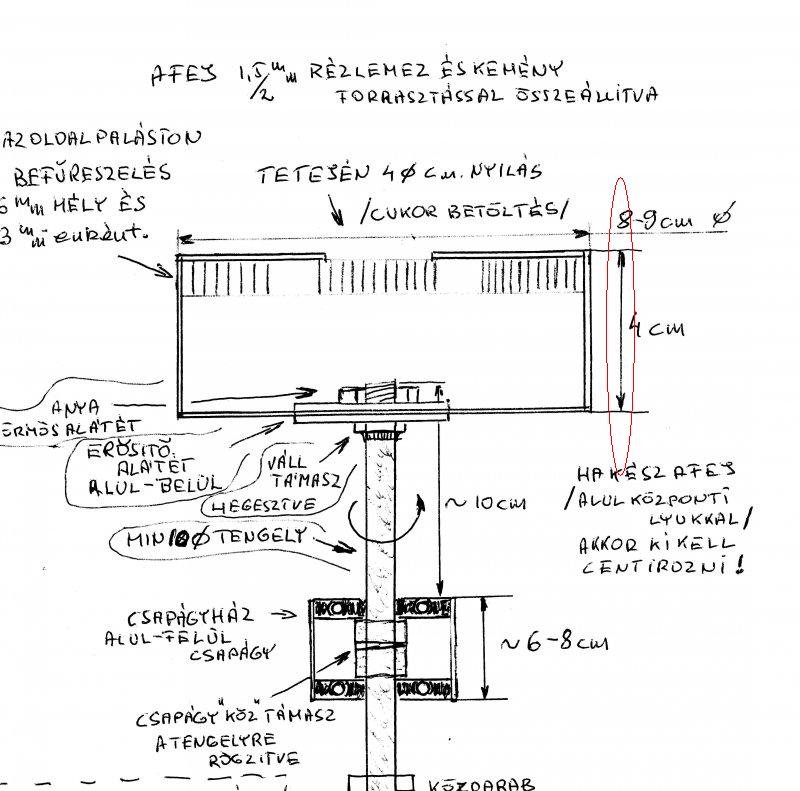 A FEJ 1,5/2 mm RÉZLEMEZ ÉS KEMÉNY
FORRASZTÁSSAL ÖSSZEÁLLÍTVA
AZ OLDALPALÁSTON
BEFŰRESZELÉS
6 mm MÉLY ÉS
3 mm-enként.
TETEJÉN 4 ø cm. NYILÁS
/CUKOR BETÖLTÉS/
8-9 cm ø
4 cm
ANYA
ERMÓSALÁTÉT
ERŐSITŐ
ALÁTÉT
ALUL-BELÜL
VÁLL
TÁMASZ
HEGESZTVE
MIN 10 ø TENGELY
~ 10 cm
HA KÉSZ A FEJ
/ALUL KÖZPONTI
LYUKKAL/
AKKOR KI KELL
CENTIROZNI!
CSAPÁGYHÁZ
ALUL-FELÜL
CSAPÁGY
~ 6-8 cm
CSAPÁGY "KÖZ" TÁMASZ
A TENGELYRE
RÖGZITVE
KÖZDARAB